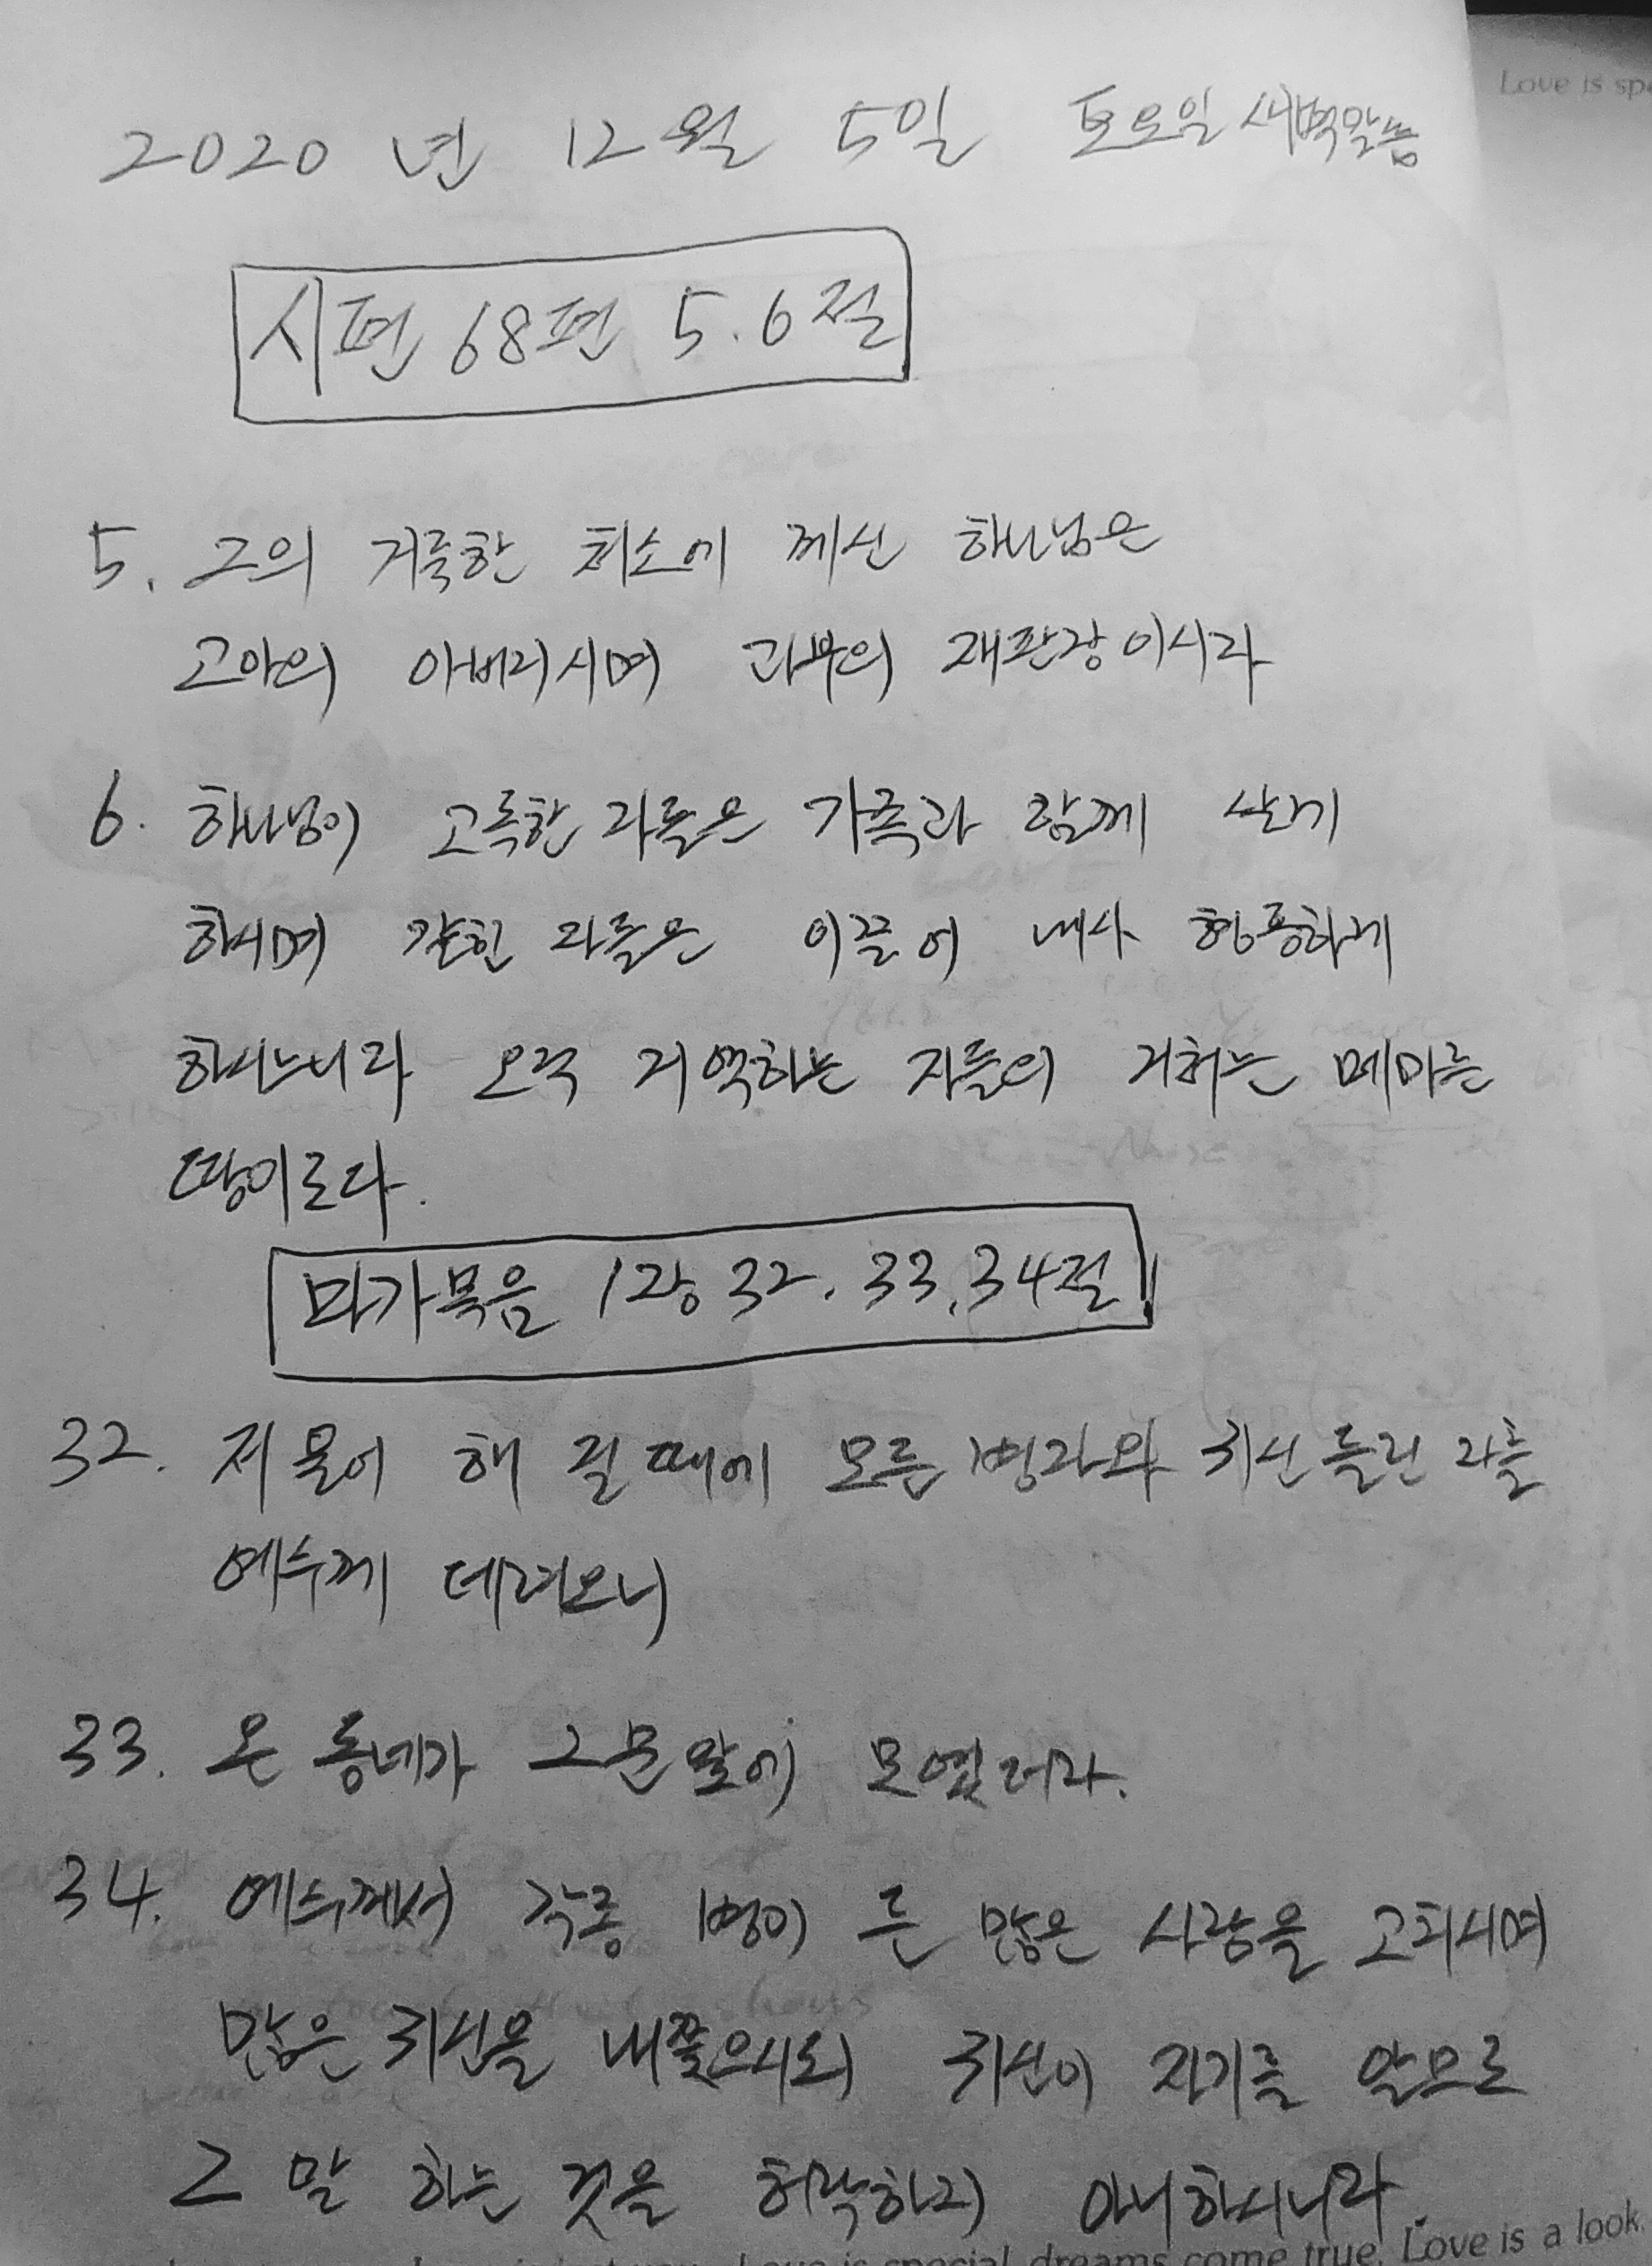 Love is spe
2020 년 12월 5일 토요일 새벽말씀
시편 68편 5.6절
5. 그의 거룩한 처소에 계신 하나님은
고아의 아버지시며 과부의 재판장이시라
6. 하나님이 고독한 자들은 가족과 함께 살게
하시며 갇힌 자들은 이끌어 내사 형통하게
하시느니라 오직 거역하는 자들의 거하는 메마른
땅이로다.
마가복음 1장 32. 33. 34절
32. 저물어 해 질 때에 모든 병자와 귀신 들린 자를
예수께 데려오니
33. 온 동네가 그 문 앞에 모였더라.
34. 예수께서 각종 병이 든 많은 사람을 고치시며
많은 귀신을 내쫓으시되 귀신이 자기를 알므로
그 말 하는 것을 허락하지 아니하시니라.
is special dreams come true. Love is a look